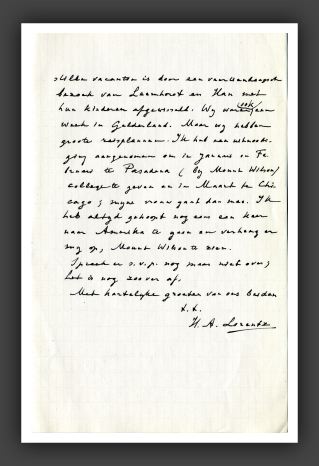 vacanten is door een
bezoek van en Han met
hun kinderen afgewisseld. Wy waren ook een
week in Gelderland. Maar wy hebben
groote reisplannen. Ik heb een uitnoodi-
ging aangenomen om in Januari en Fe-
bruari te Pasadena (by Mount Wilson)
college te geven en in Maart te Chi-
cago; myne vrouw gaat dan mee. Ik
heb altyd gehoopt nog eens een keer
naar Amerika te gaan en verheug er
my op, Mount Wilson te zien.
Spreek er s.v.p. nog maar niet over;
het is nog zoo ver af.
Met hartelyke groeten van ons beiden
t.t.
H. A. Lorentz